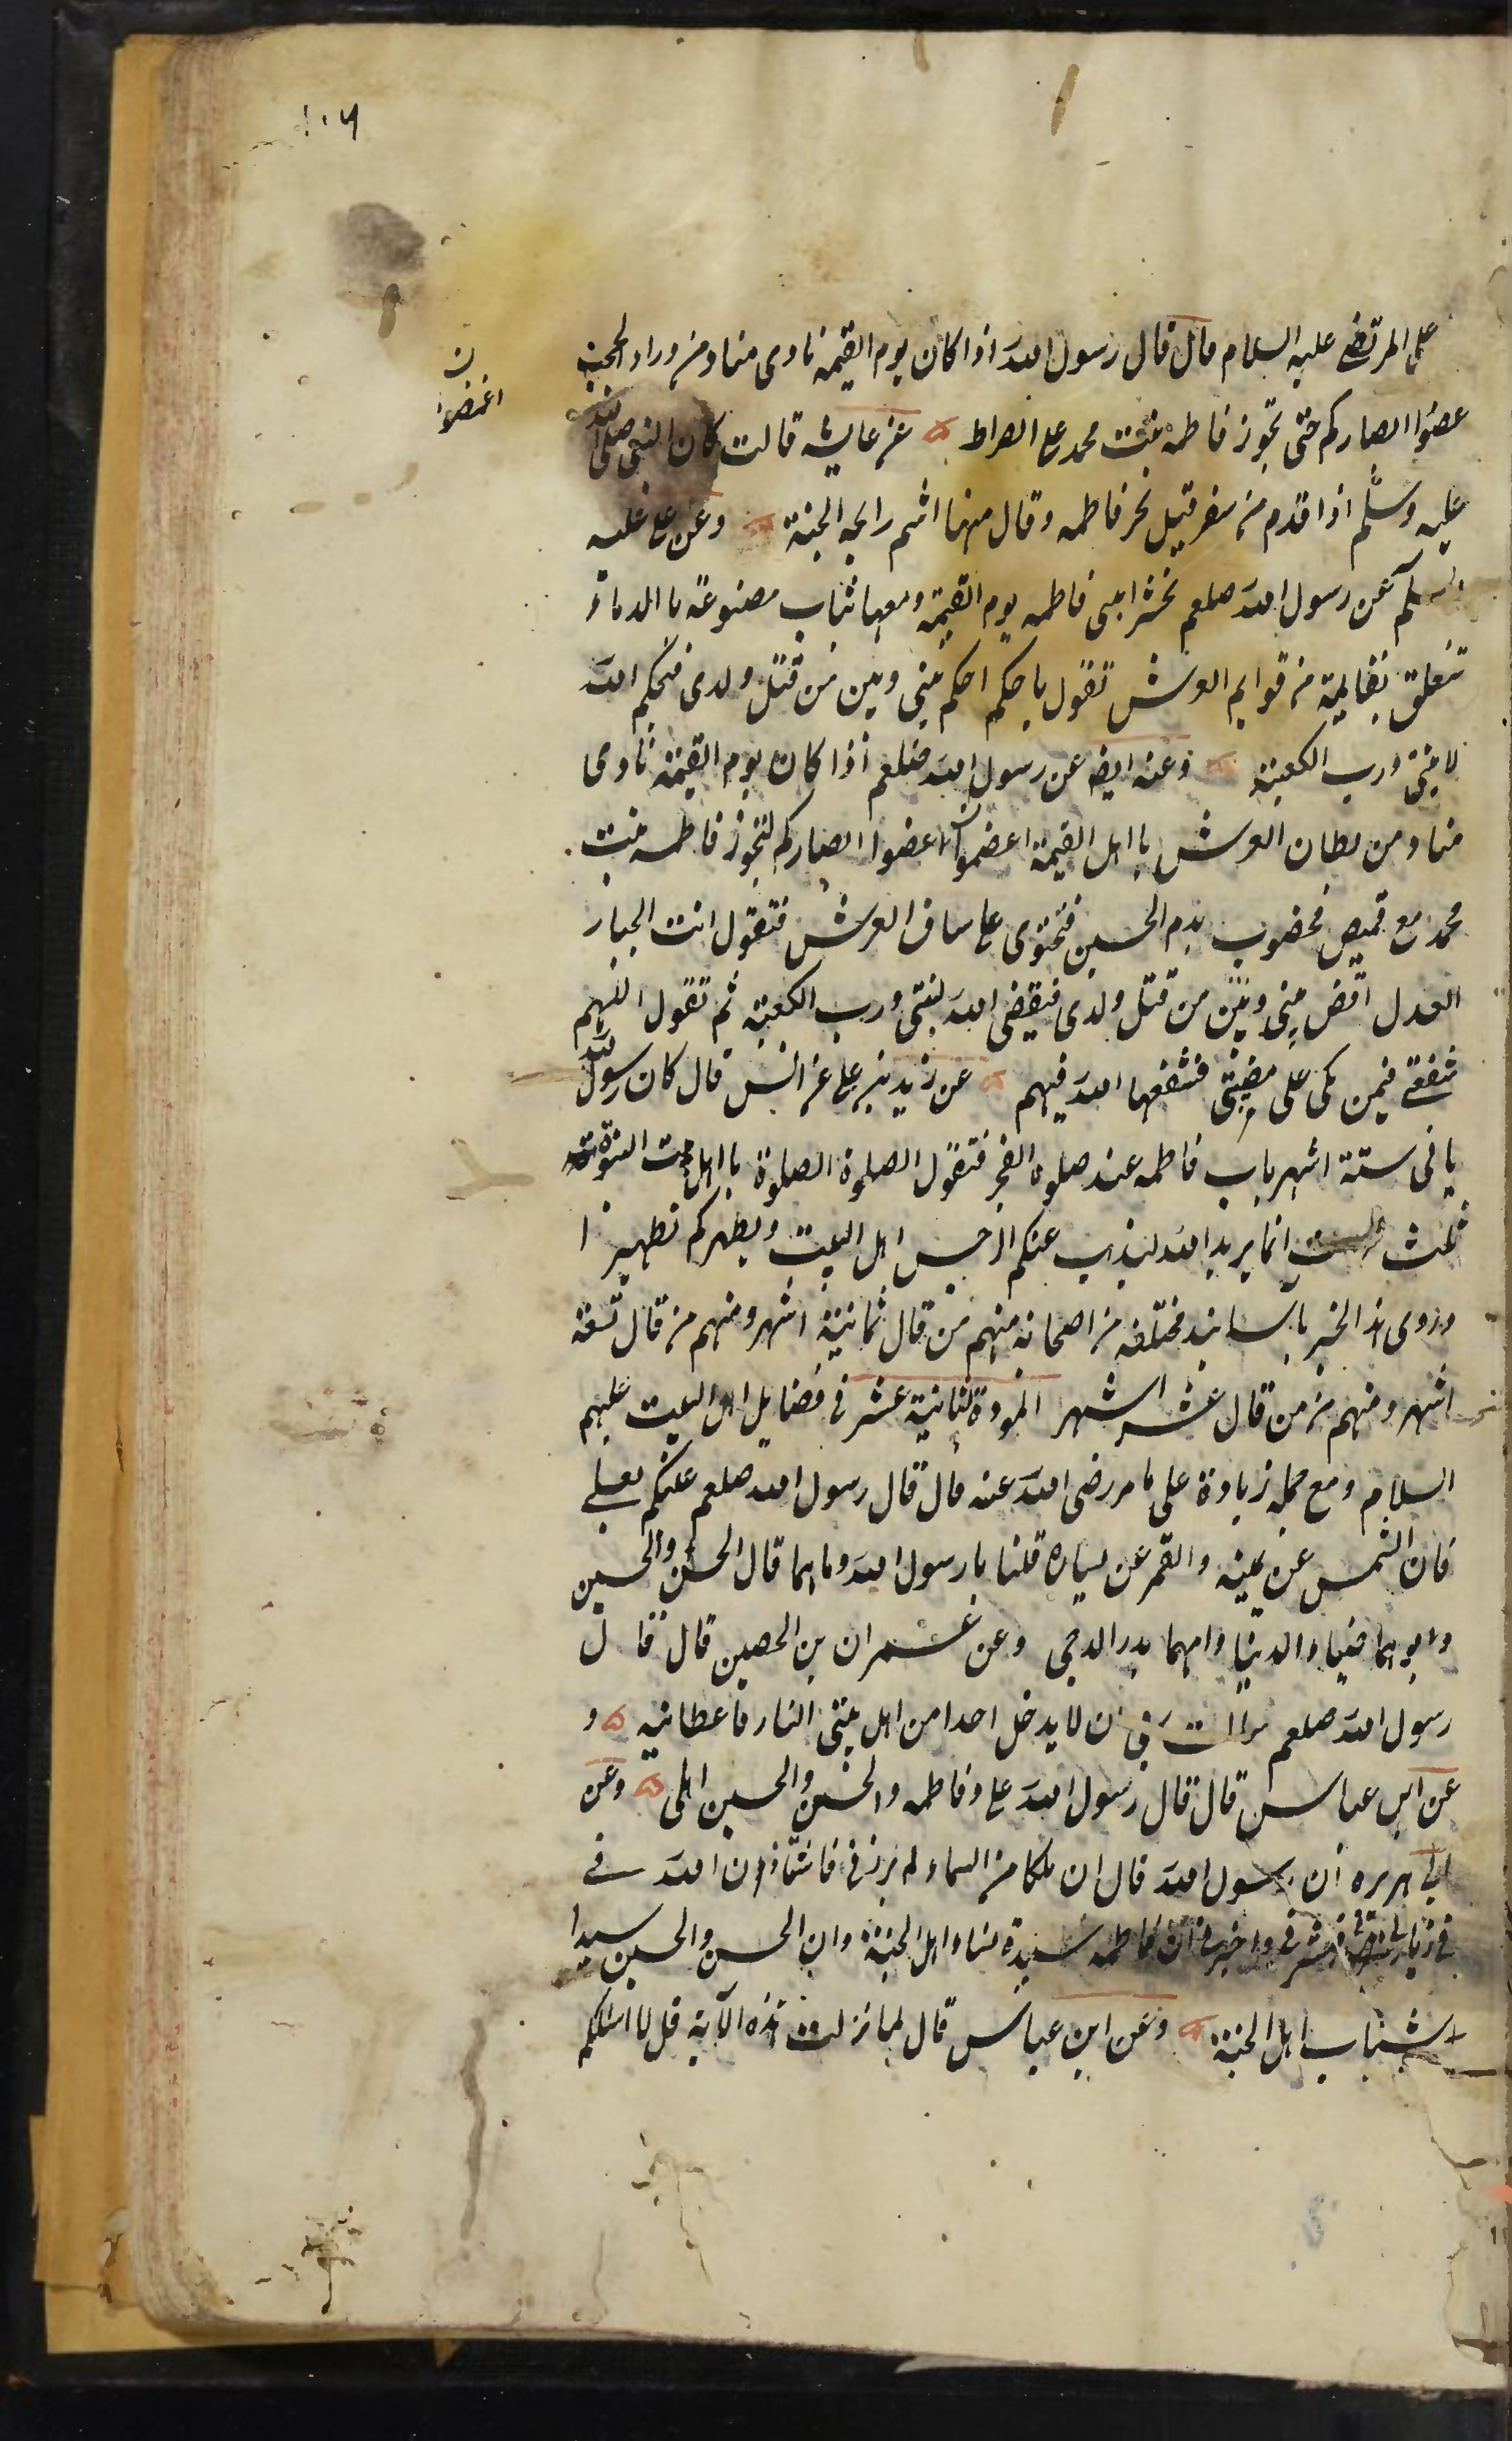 ١٠٦
على المرتضى عليه السلام قال قال رسول الله اذا كان يوم القيمة نادى مناد من وراء الحجب
غضوا ابصاركم حتى تجوز فاطمه بنت محمد على الصراط ۵ عن عايشه قالت كان النبى صلى الله
ن اغمضوا
عليه وسلم اذا قدم من سفر قبل نحر فاطمه وقال منها اشم رايحه الجنة ۵ وعن على عليه
السلام عن رسول الله صلعم تحشر ابنتى فاطمه يوم القيمة ومعها ثياب مصنوعة بالدماء
تتعلق بقايمة من قوايم العرش تقول يا حكم احكم بينى وبين من قتل ولدى فيحكم الله
لابنتى ورب الكعبة ۵ وعنه ايضا عن رسول الله صلعم اذا كان يوم القيمة نادى
مناد من بطان العرش يا اهل القيمة اغمضوا ابصاركم لتجوز فاطمه بنت
محمد مع قميص مخضوب بدم الحسين فتحتوى على ساق العرش فتقول انت الجبار
العدل اقض بينى وبين من قتل ولدى فيقضى الله لبنتى ورب الكعبة ثم تقول اللهم
شفعنى فيمن بكى على مصيبتى فشفعها الله فيهم ۵ عن زيد بن على عن انس قال كان رسول الله
ياتى ستة اشهر باب فاطمه عند صلوة الفجر فتقول الصلوة الصلوة يا اهل بيت النبوة
ثلث انما يريد الله ليذهب عنكم الرجس اهل البيت ويطهركم تطهيرا
وروى هذا الخبر باسانيد مختلفه من اصحابه منهم من قال ثمانية اشهر ومنهم من قال تسعة
اشهر ومنهم من قال عشر اشهر المودة الثانية عشر فى فضايل اهل البيت عليهم
السلام ومع جملة زيادة على ما مر رضى الله عنه قال قال رسول الله صلعم عليكم بعلى
فان الشمس عن يمينه والقمر عن يساره قلنا يا رسول الله وما هما قال الحسن والحسين
وابوهما ضياء الدنيا وامهما بدر الدجى وعن عمران بن الحصين قال قال
رسول الله صلعم سالت ربى ان لا يدخل احدا من اهل بيتى النار فاعطانيه ۵ و
عن ابن عباس قال قال رسول الله على وفاطمه والحسن والحسين اهلى ۵ وعن
ابى هريره ان رسول الله قال ان ملكا من السماء لم يزرنى فاستاذن الله فى
فى زيارتى فبشرنى واخبرنى ان فاطمه سيدة نساء اهل الجنة وان الحسن والحسين سيدا
شباب اهل الجنة ۵ وعن ابن عباس قال لما نزلت هذه الآية قل لا اسئلكم